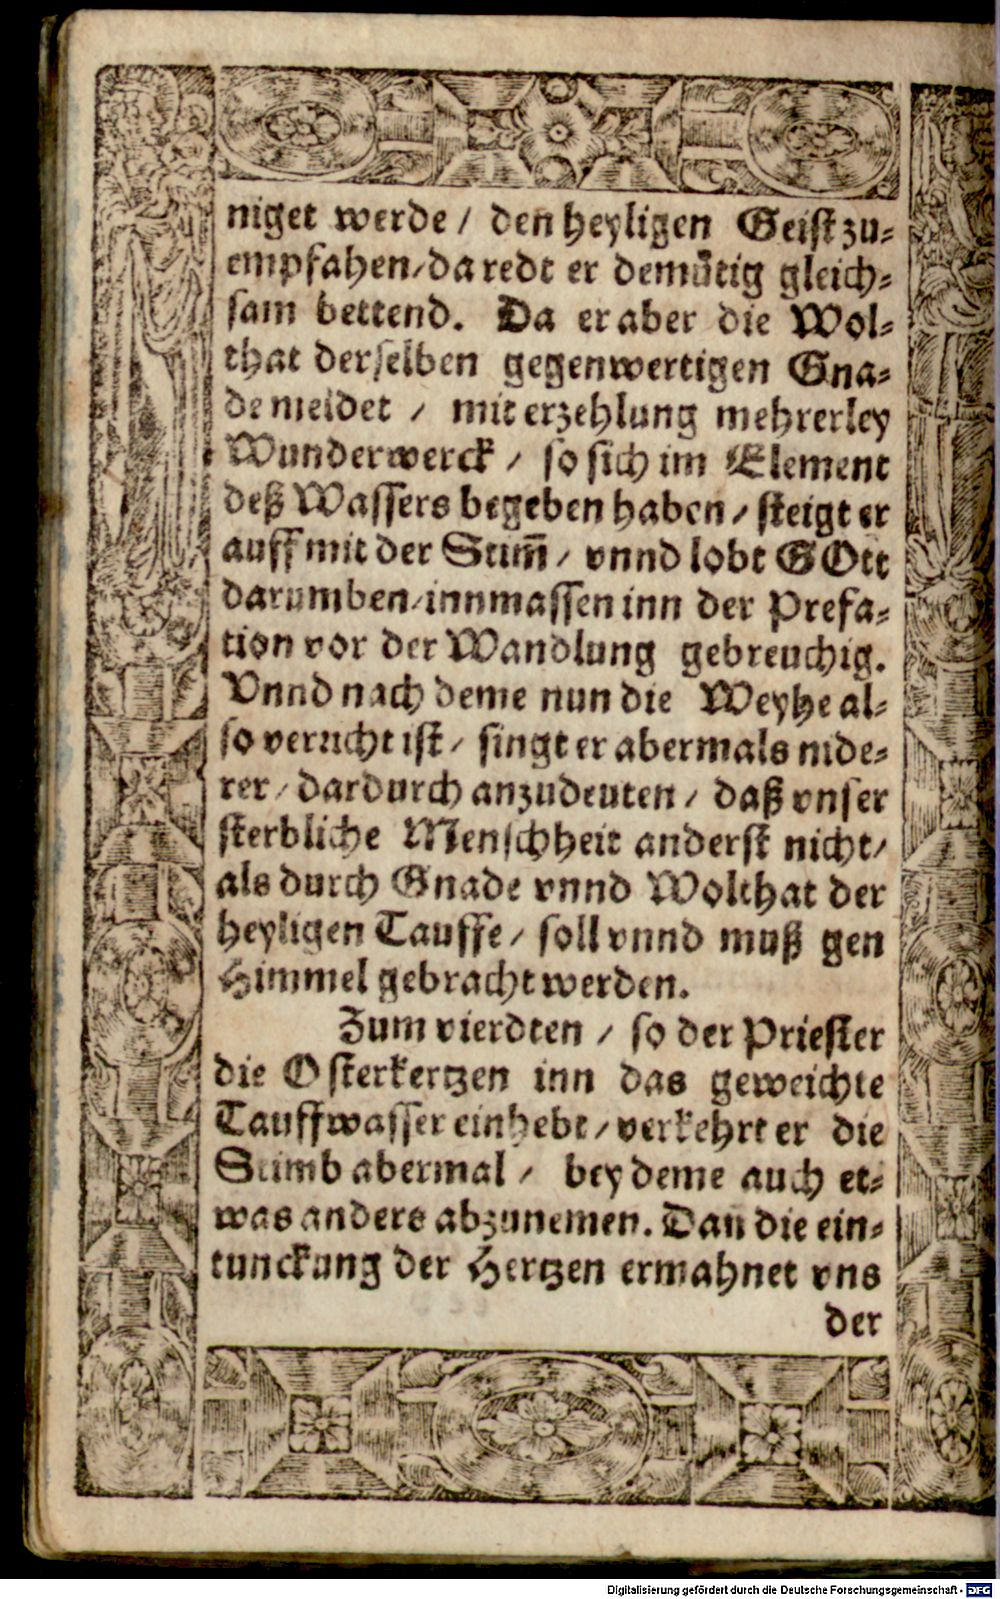 niget werde / den heyligen Geist zu-
empfahen / da redt er demütig gleich-
sam bettend. Da er aber die Wol-
that derselben gegenwertigen Gna-
de meldet / mit erzehlung mehrerley
Wunderwerck / so sich im Element
deß Wassers begeben haben / steigt er
auff mit der Stim̄ / vnnd lobt GOtt
darumben / innmassen inn der Prefa-
tion vor der Wandlung gebreuchig.
Vnnd nach deme nun die Weyhe al-
so verricht ist / singt er abermals nide-
rer / dardurch anzudeuten / daß vnser
sterbliche Menschheit anderst nicht /
als durch Gnade vnnd Wolthat der
heyligen Tauffe / soll vnnd muß gen
Himmel gebracht werden.
Zum vierdten / so der Priester
die Osterkertzen inn das geweichte
Tauffwasser einhebt / verkehrt er die
Stimb abermal / bey deme auch et-
was anders abzunemen. Dan̄ die ein-
tunckung der Hertzen ermahnet vns
der
Digitalisierung gefördert durch die Deutsche Forschungsgemeinschaft - DFG